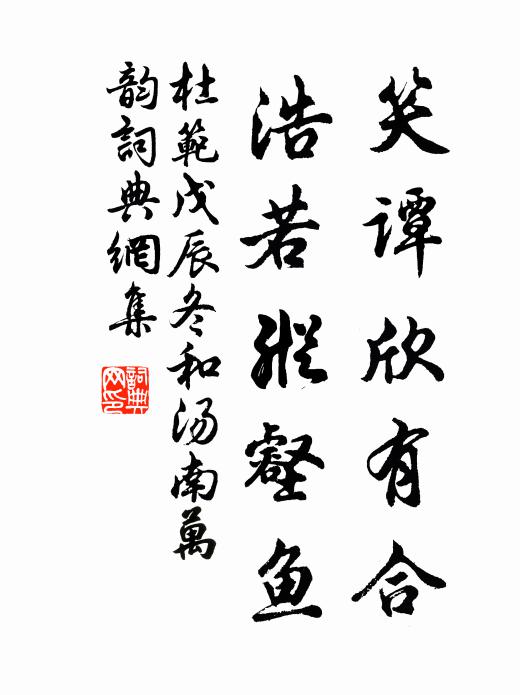 笑谭欣有合
浩若纵壑鱼
杜範戊辰冬和汤南萬
韵詞典網集
詞典網印